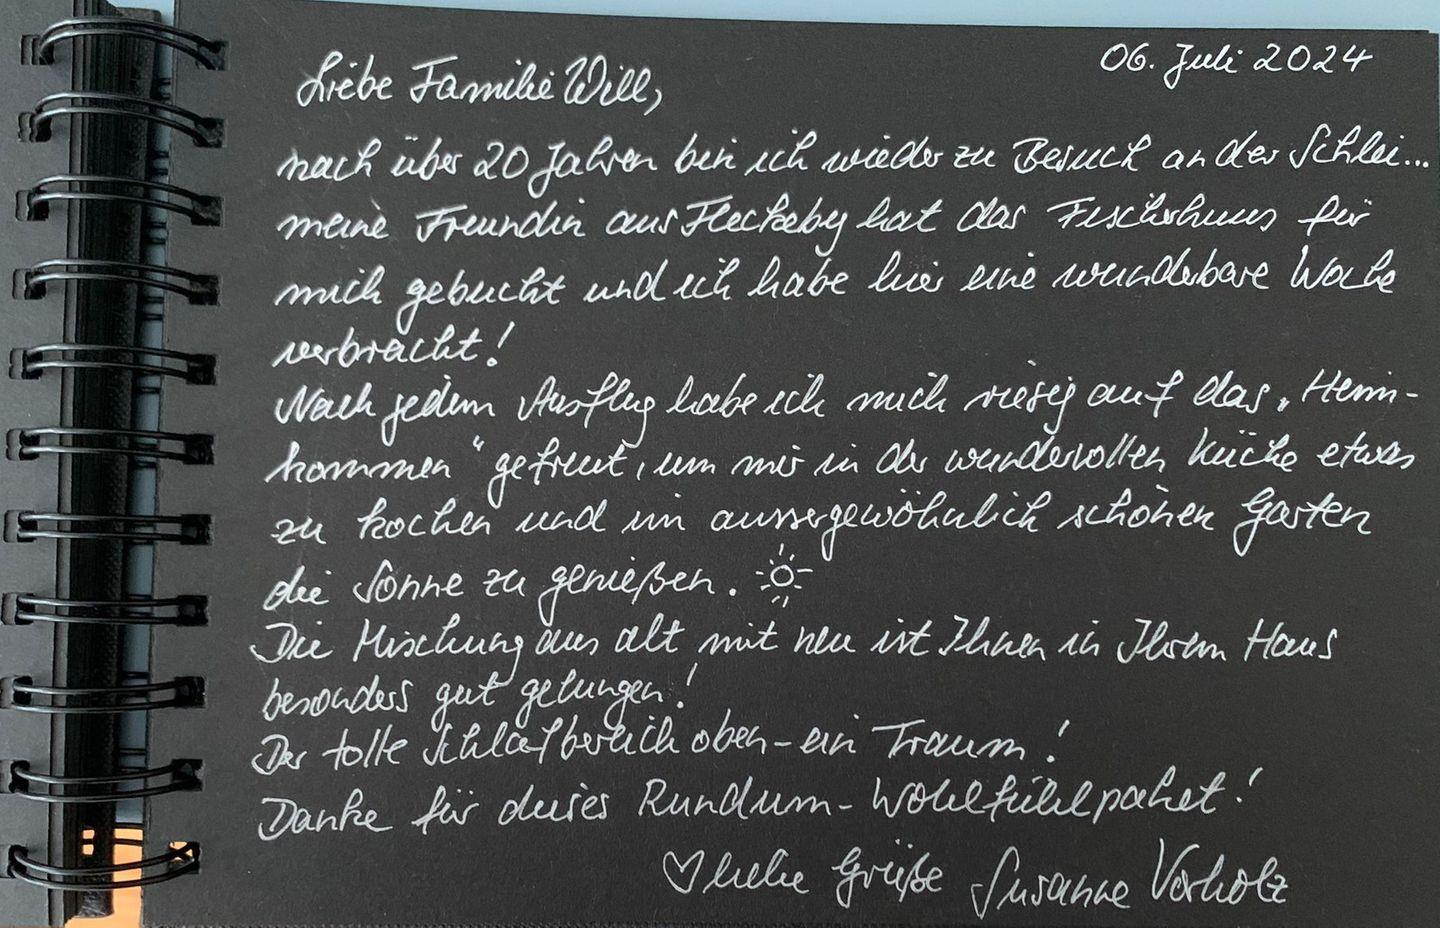 06. Juli 2024
Liebe Familie Will,
nach über 20 Jahren bin ich wieder zu Besuch an der Schlei...
meine Freundin aus Fleckeby hat das Fischerhuus für
mich gebucht und ich habe hier eine wunderbare Woche
verbracht!
Nach jedem Ausflug habe ich mich riesig auf das „Heim-
kommen“ gefreut, um mir in der wundervollen Küche etwas
zu kochen und im aussergewöhnlich schönen Garten
die Sonne zu genießen.
Die Mischung aus alt mit neu ist Ihnen in Ihrem Haus
besonders gut gelungen!
Der tolle Schlafbereich oben – ein Traum!
Danke für dieses Rundum-Wohlfühlpaket!
♡ liebe Grüße Susanne Vorholz